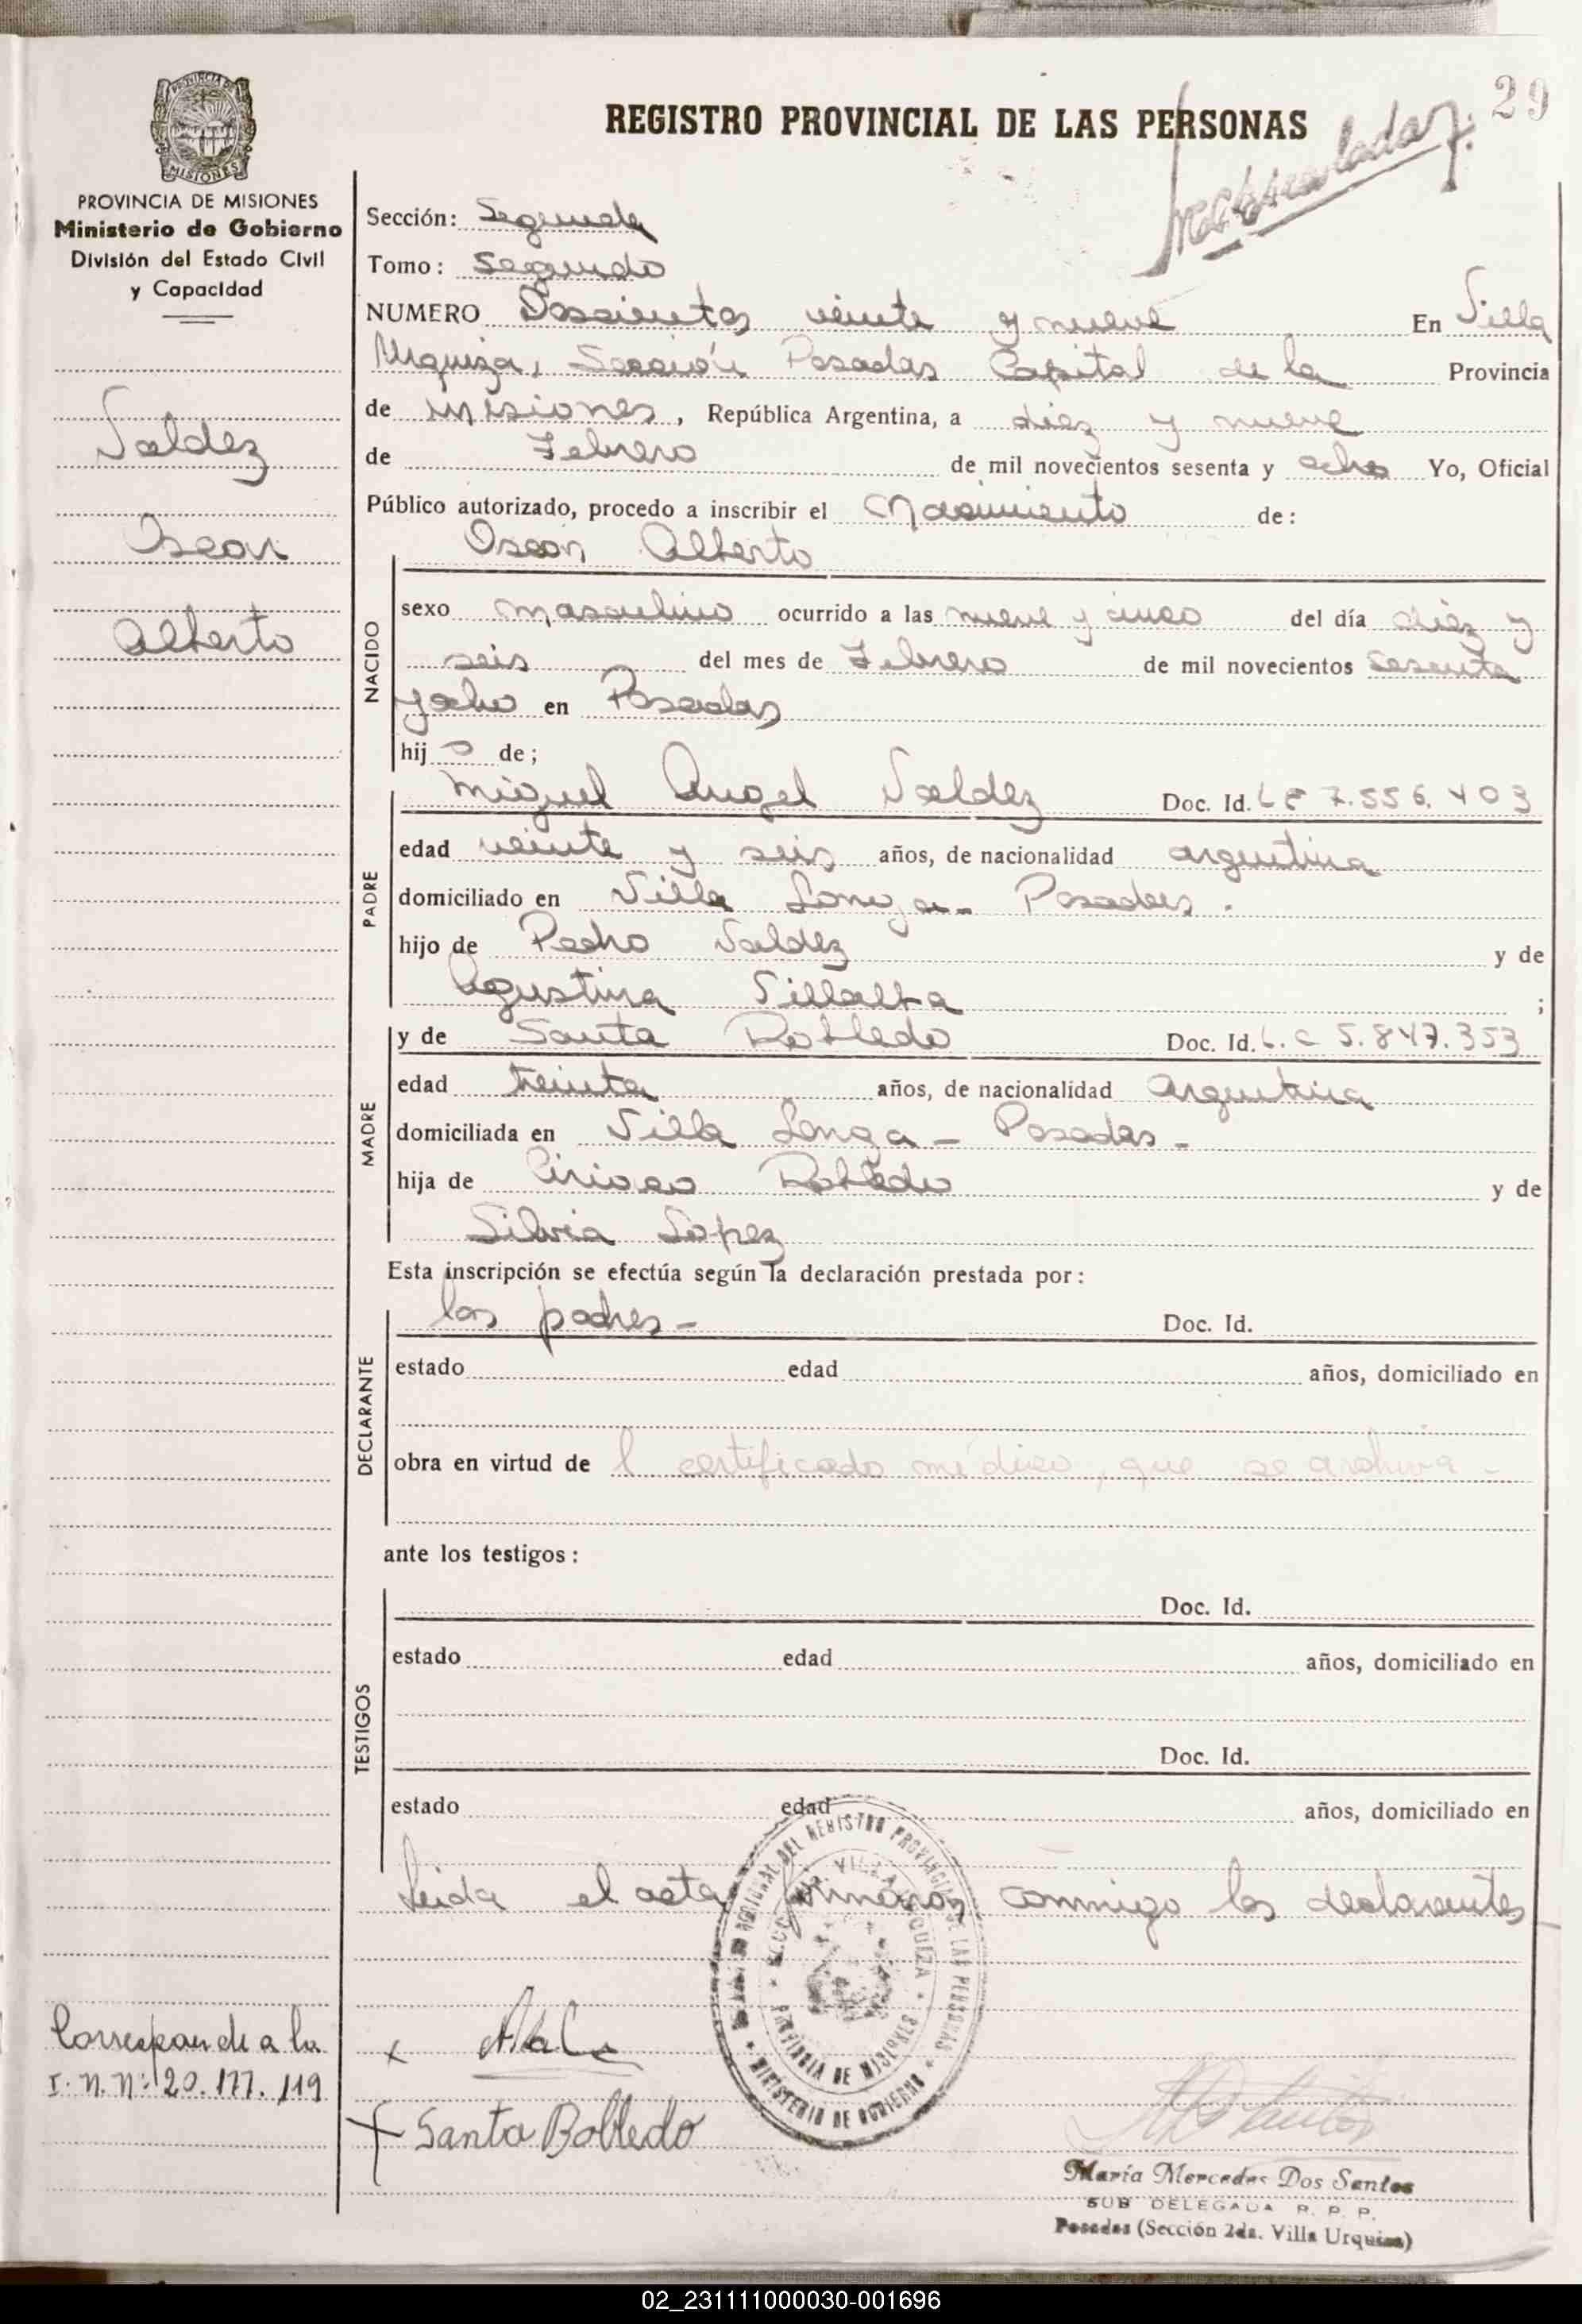 29
REGISTRO PROVINCIAL DE LAS PERSONAS
Matriculado
PROVINCIA DE MISIONES
Ministerio de Gobierno
División del Estado Civil
y Capacidad
Valdez
Oscar
Alberto
Sección: Segunda
Tomo: Segundo
NUMERO Doscientos veinte y nueve En Villa
Urquiza, Sección Posadas Capital de la Provincia
de Misiones, República Argentina, a diez y nueve
de Febrero de mil novecientos sesenta y ocho Yo, Oficial
Público autorizado, procedo a inscribir el Nacimiento de:
Oscar Alberto
NACIDO
sexo masculino ocurrido a las nueve y cinco del día diez y
seis del mes de Febrero de mil novecientos sesenta
y ocho en Posadas
hijo de;
PADRE
Miguel Angel Valdez Doc. Id. L E 7.556.403
edad veinte y seis años, de nacionalidad argentina
domiciliado en Villa Longa - Posadas.
hijo de Pedro Valdez y de
Agustina Villalba ;
MADRE
y de Santa Robledo Doc. Id. L. C 5.847.353
edad treinta años, de nacionalidad Argentina
domiciliada en Villa Longa - Posadas -
hija de Ciriaco Robledo y de
Silvia Lopez
Esta inscripción se efectúa según la declaración prestada por:
DECLARANTE
los padres - Doc. Id.
estado edad años, domiciliado en
obra en virtud de l certificado médico, que se archiva -
ante los testigos:
TESTIGOS
Doc. Id.
estado edad años, domiciliado en
Doc. Id.
estado edad años, domiciliado en
Leida el acta firmaron conmigo los declarantes
REGIONAL DEL REGISTRO PROVINCIAL DE LAS PERSONAS
VILLA URQUIZA
PROVINCIA DE MISIONES
MINISTERIO DE GOBIERNO
Corresponde a la
I. N. Nº 20.177.119
x
+ Santa Robledo
María Mercedes Dos Santos
SUB DELEGADA R. P. P.
Posadas (Sección 2da. Villa Urquiza)
02_231111000030-001696